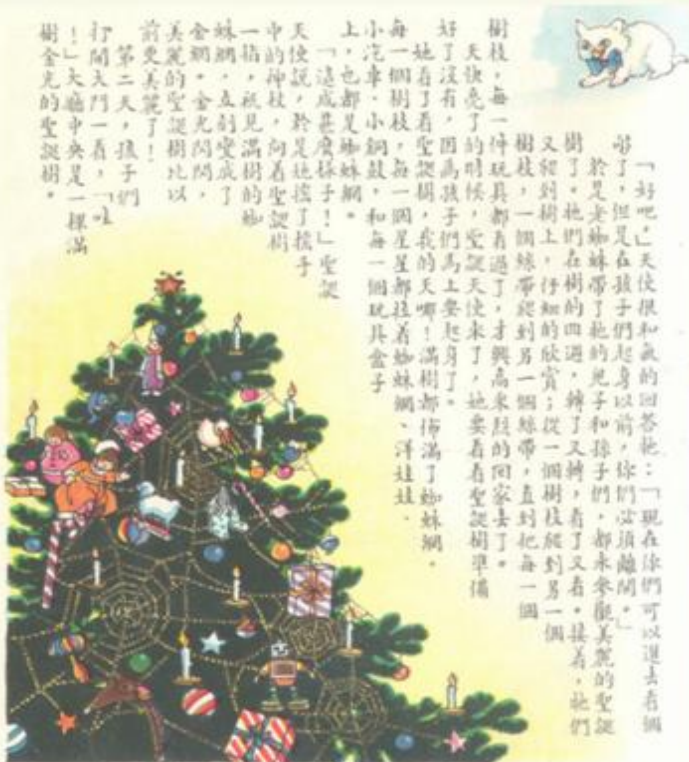 「好吧,」天使很和氣的回答牠:「現在你們可以進去看個
夠了,但是在孩子們起身以前,你們必須離開。」
於是老蜘蛛帶了牠的兒子和孫子們,都來參觀美麗的聖誕
樹了。牠們在樹的四週,轉了又轉,看了又看。接着,牠們
又爬到樹上,仔細的欣賞;從一個樹枝爬到另一個
樹枝,一個絲帶爬到另一個絲帶,直到把每一個
樹枝,每一件玩具都看過了,才興高采烈的回家去了。
天快亮了的時候,聖誕天使來了,她要看看聖誕樹準備
好了沒有,因爲孩子們馬上要起身了。
她看了看聖誕樹,我的天哪!滿樹都佈滿了蜘蛛網。
每一個樹枝,每一個星星都挂着蜘蛛網、洋娃娃、
小汽車、小銅鼓,和每一個玩具盒子
上,也都是蜘蛛網。
「這成甚麼樣子!」聖誕
天使說,於是她擡了擡手
中的神杖,向着聖誕樹
一指,祇見滿樹的蜘
蛛網,立刻變成了
金網。金光閃閃,
美麗的聖誕樹比以
前更美麗了!
第二天,孩子們
打開大門一看,「哇
!」大廳中央是一棵滿
樹金光的聖誕樹。